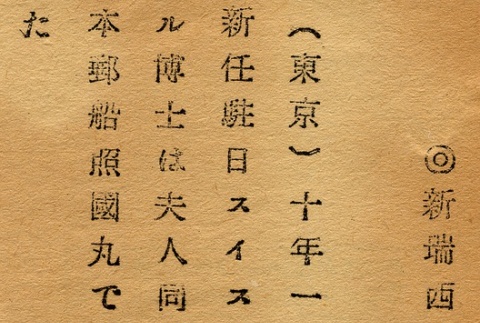 ◎新瑞西
(東京)十年一
新任駐日スイス
ル博士は夫人同
本郵船照國丸で
た